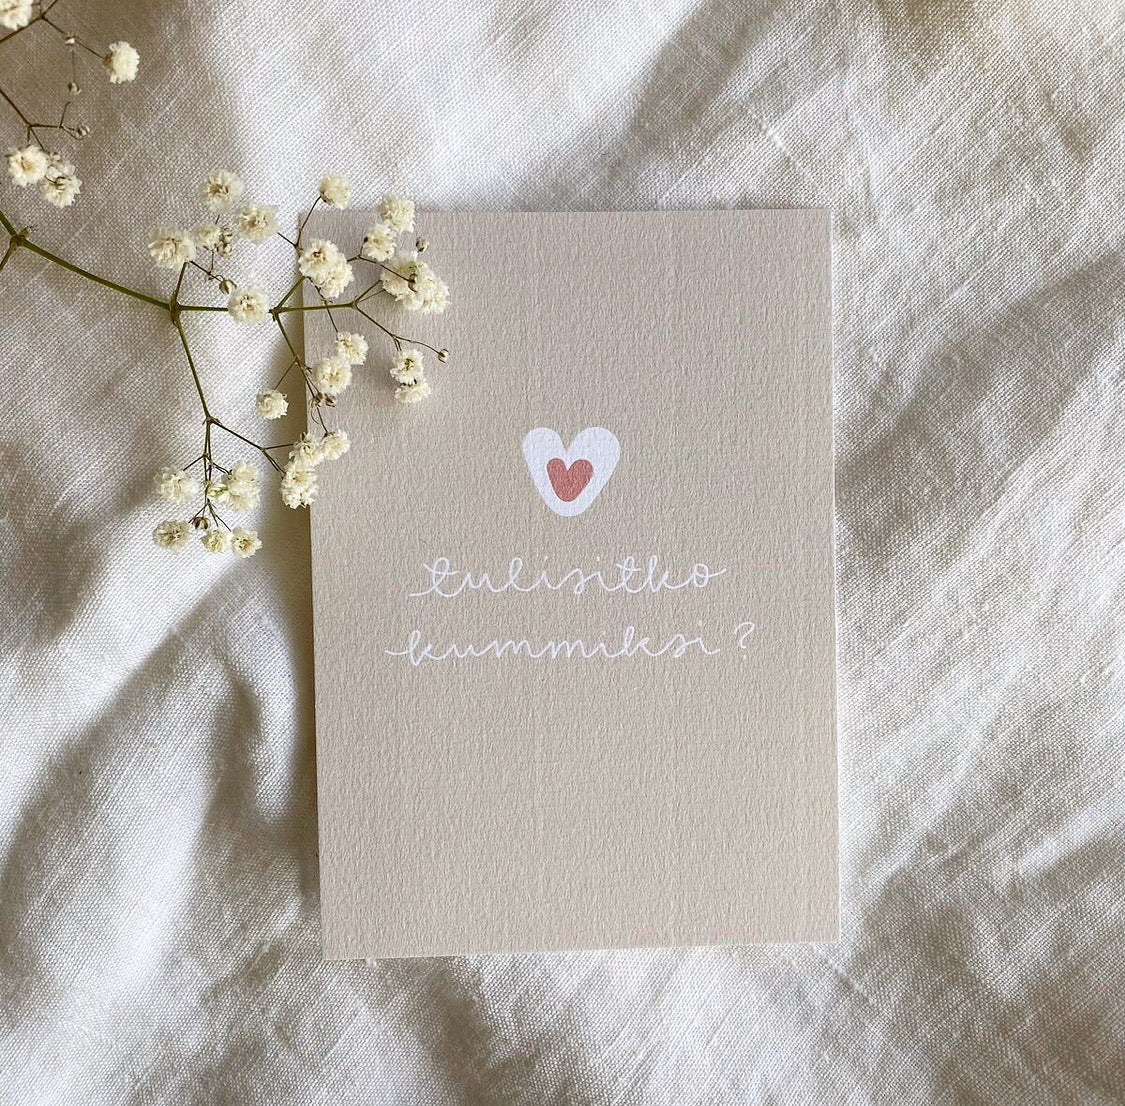 tulisitko
kummiksi?